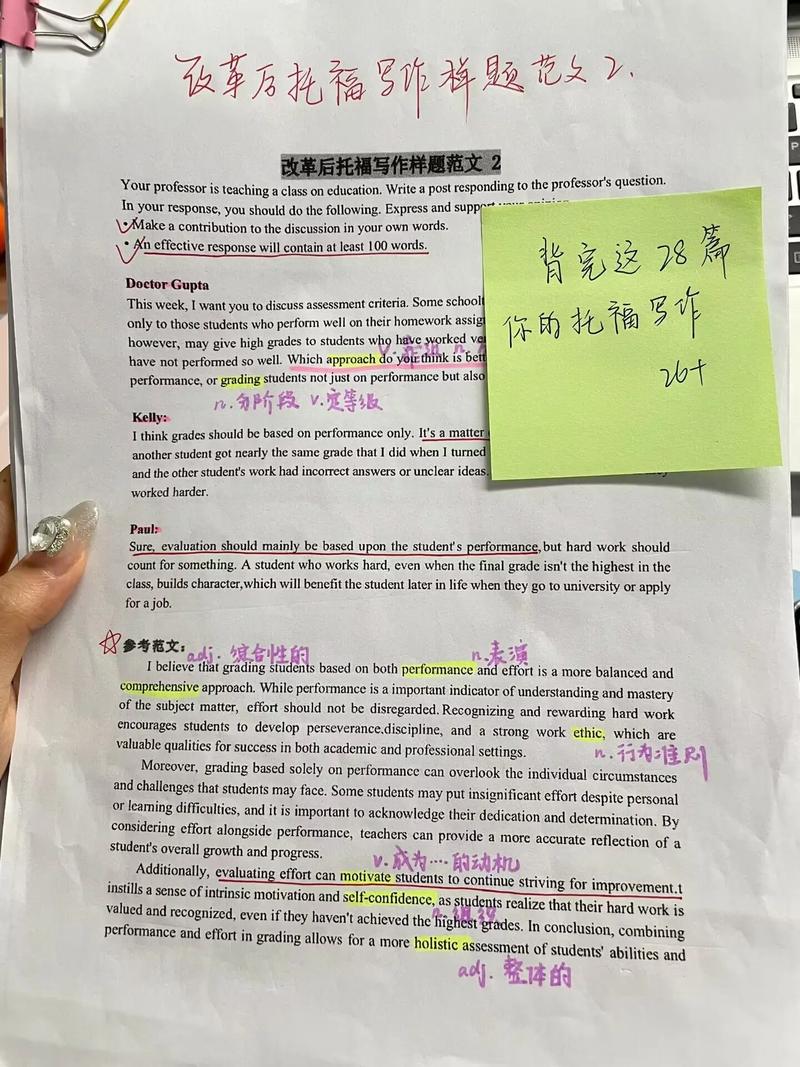 改革后托福写作样题范文2.
改革后托福写作样题范文 2
Your professor is teaching a class on education. Write a post responding to the professor's question.
In your response, you should do the following. Express and support your opinion
• Make a contribution to the discussion in your own words.
• An effective response will contain at least 100 words.
背完这28篇
你的托福写作
26+
Doctor Gupta
This week, I want you to discuss assessment criteria. Some school
only to those students who perform well on their homework assig
however, may give high grades to students who have worked ve
have not performed so well. Which approach do you think is bet
performance, or grading students not just on performance but also
n.分阶段 v.定等级
Kelly:
I think grades should be based on performance only. It's a matter
another student got nearly the same grade that I did when I turned
and the other student's work had incorrect answers or unclear ideas.
worked harder.
Paul:
Sure, evaluation should mainly be based upon the student's performance,but hard work should
count for something. A student who works hard, even when the final grade isn't the highest in the
class, builds character,which will benefit the student later in life when they go to university or apply
for a job.
参考范文:
adj. 综合性的 n.表演
I believe that grading students based on both performance and effort is a more balanced and
comprehensive approach. While performance is a important indicator of understanding and mastery
of the subject matter, effort should not be disregarded. Recognizing and rewarding hard work
encourages students to develop perseverance,discipline, and a strong work ethic, which are
valuable qualities for success in both academic and professional settings.
n.行为准则
Moreover, grading based solely on performance can overlook the individual circumstances
and challenges that students may face. Some students may put insignificant effort despite personal
or learning difficulties, and it is important to acknowledge their dedication and determination. By
considering effort alongside performance, teachers can provide a more accurate reflection of a
student's overall growth and progress.
v.成为····的动机
Additionally, evaluating effort can motivate students to continue striving for improvement.t
instills a sense of intrinsic motivation and self-confidence, as students realize that their hard work is
valued and recognized, even if they haven't achieved the highest grades. In conclusion, combining
performance and effort in grading allows for a more holistic assessment of students' abilities and
adj. 整体的